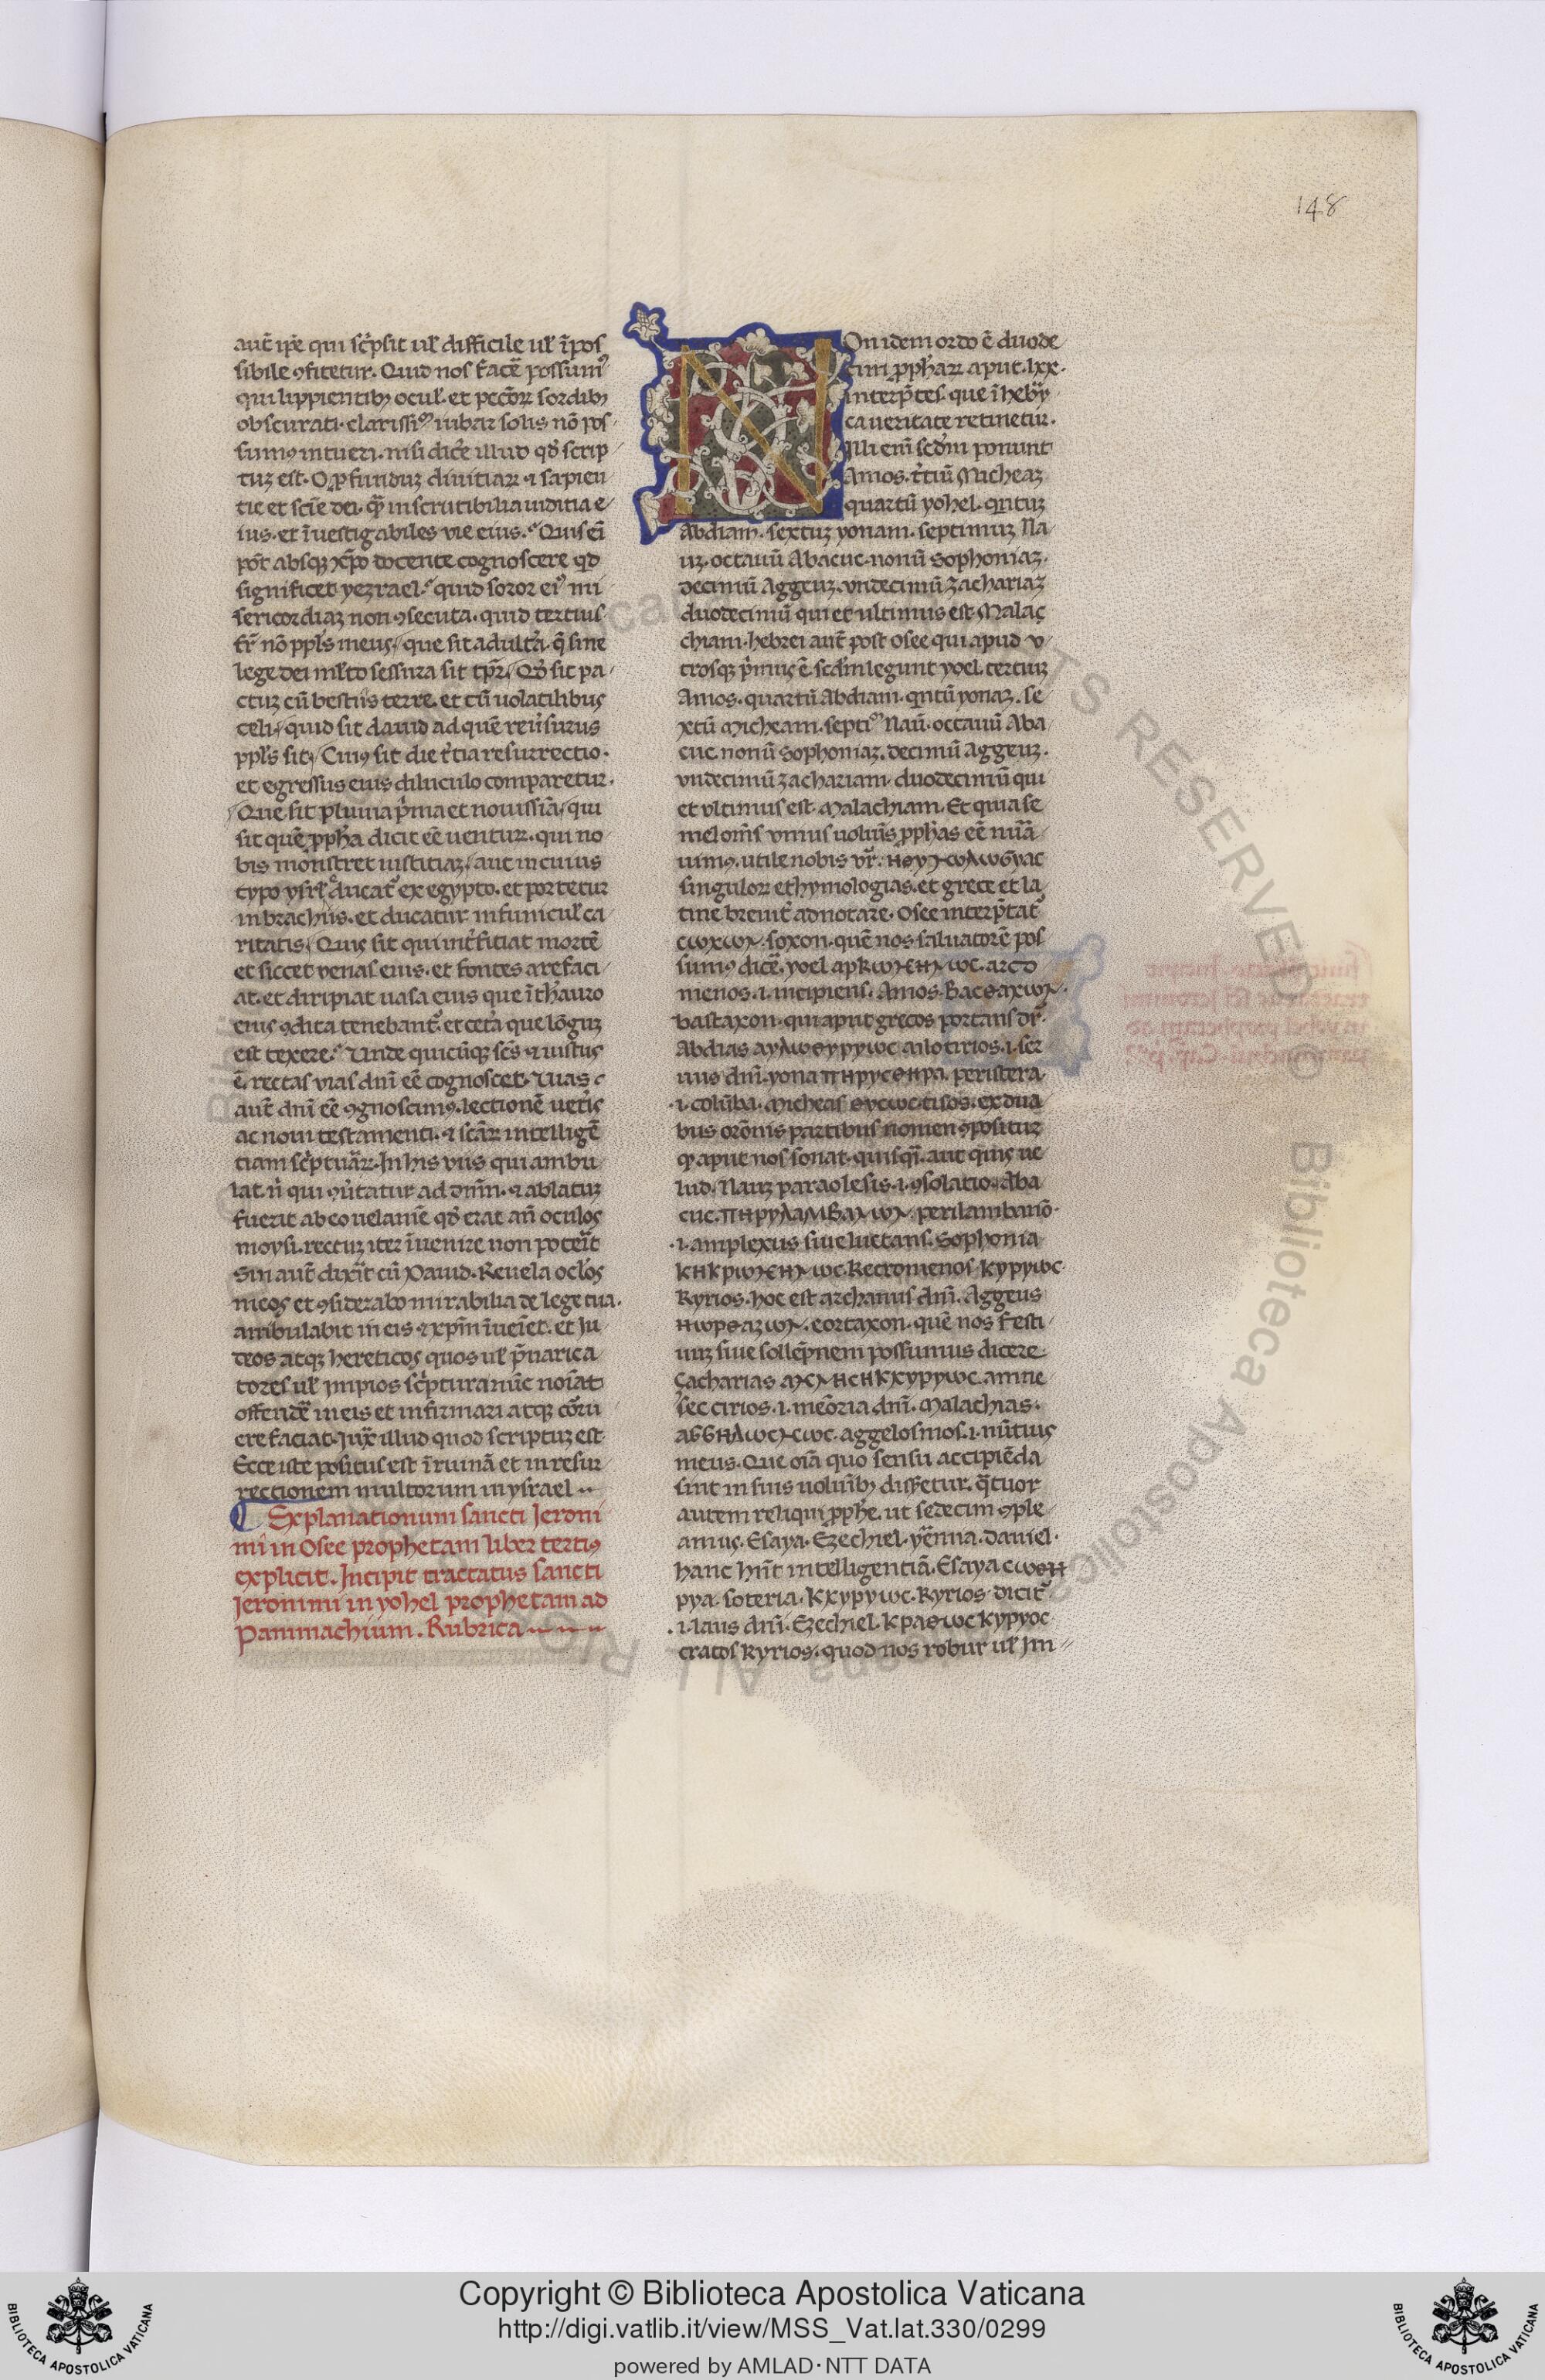 148
aut̄ ip̄e qui sc̄psit ul̄ difficile ul̄ īpos
sibile ꝯfitetur. Quid nos fac̄e possumꝰ
qui lippientibꝫ ocul̄. et pecc̄oꝝ sordibꝫ
obscurati. clarissiꝰ iubar solis nō pos
sumꝰ intueri. nisi dic̄e illud qd̄ scrip
tuꝫ est. O ꝓfunduꝫ diuitiaꝝ ⁊ sapien
tie et scīe dei. q̄ inscrutibilia iuditia e
ius. et īuestigabiles vie eius. Quis eī
pōt absqꝫ xp̄o docente cognoscere qd
significet yezrael. quid soror eiꝰ mi
sericordiaꝫ non ꝯsecuta. quid tertius
fr̄ nō ppl̄s meus. que sit adult̄a. q̄ sine
lege dei ml̄to sessura sit tp̄r. Qd̄ sit pa
ctuꝫ cū bestiis terre. et cū uolatilibus
celi. quid sit dauid ad quē reu̓surus
ppl̄s sit. Cuiꝰ sit die t̓tia resurrectio.
et egressus eius diluculo comparetur.
Que sit pluuia p̓ma et nouissīa. qui
sit quē ꝓph̄a dicit eē uentuꝝ. qui no
bis monstret iustitiaꝫ. aut in cuius
typo ysrl̄ ducat̄ ex egypto. et portetur
in brachiis. et ducatur in funicul̄ ca
ritatis. Quis sit qui int̓ficiat mortē
et siccet venas eius. et fontes arefaci
at. et diripiat uasa eius que ī thauro
eius ꝯdita tenebant̄. et cet̓a que lōguꝫ
est texere. Unde quicūqꝫ sc̄s ⁊ iustus
ē. rectas vias dn̄i eē cognoscet. Vias
aut̄ dn̄i eē ꝯgnoscimꝰ. lectionē uet̓is
ac noui testamenti. ⁊ scāꝝ intelligē
tiam sc̓ptuāꝝ. In his viis qui ambu
lat. n̄ qui ꝯu̓tatur ad dn̄m. ⁊ ablatuꝫ
fuerit ab eo uelam̄e qd̄ erat an̄ oculos
moysi. rectuꝫ iter īuenire non potēit
Sin aut̄ dixīt cū Dauid. Reuela oclōs
meos et ꝯsiderabo mirabilia de lege tua.
ambulabit in eis ⁊ xp̄m īueiēt. et Iu
deos atqꝫ hereticos quos ul̄ p̄uarica
tores ul̄ īmpios sc̓ptura nūc noīat
offendē in eis et infirmari atqꝫ cōru
ere faciat. Iux̄ illud quod scriptuꝫ est
Ecce iste positus est ī ruinā et in resur
rectionem multorum in ysrael
Explanationum sancti Ieroni
mi in Osee prophetam liber tertiꝰ
explicit. Incipit tractatus sancti
Ieronimi in yohel prophetam ad
Pammachium. Rubrica
NOn idem ordo ē duode
cim ꝓphaꝝ aput. lxx.
interp̄tes. que ī heby̓
ca ueritate retinetur.
Illi enī scd̄m ponunt
Amos. t̓tiū Micheaꝫ
quartū yohel. qntuꝫ
Abdiam. sextuꝫ yonam. septimuꝫ Na
uꝫ. octauū Abacuc. nonū Sophoniaꝫ.
decimū Aggeuꝫ. vndecimū Zachariaꝫ
duodecimū qui et ultimus est Malac
chiam. hebrei aut̄ post osee qui apud v
trosqꝫ p̓mus ē scd̄m legunt yoel. tertiuꝫ
Amos. quartū Abdiam. qntū yonaꝫ. Se
xtū Micheam. septiꝰ Naū. octauū Aba
cuc. nonū Sophoniaꝫ. decimū Aggeuꝫ.
vndecimū zachariam. duodecimū qui
et vltimus est Malachiam. Et quia se
mel om̄s vnius uolūīs ꝓphas eē nūa
uimꝰ. utile nobis vr̄.
singuloꝝ ethymologias. et grece et la
tine breuit̓ adnotare. Osee interp̄tat̄
cωχωɴ. soxon. quē nos saluatorē pos
sumꝰ dicē. yoel apκωɴεɴωc. arco
menos .i. incipiens. Amos. Bacθaχωɴ.
bastaxon. qui aput grecos portans dr̄.
Abdias aγλωθγpγωc ailotirios .i. ser
uus dn̄i. yona πнpγcθнpa. peristera
.i. colūba. Micheas θγcωc tisos. ex dua
bus orōnis partibus nomen ꝯpositurꝫ
qꝫ aput nos sonat. quisqī. aut qnis ue
lud. Nauꝫ paraolesis .i. ꝯsolatio. Aba
cuc. πнpγλaмBaɴωɴ. perilambanō.
.i. amplexus siue luctans. Sophonia
κнκpωɴεнɴωc. Kecromenos κγpγωc
Kyrios. hoc est archanus dn̄i. Aggeus
нωpθazωɴ. eortaxon. quē nos festi
uꝫ siue sollēpnem possumus dicere.
Çacharias aɴcɴнcнκχγpγωc. amne
sec cirios .i. meōria dn̄i. Malachias.
aϬϬнλωcɴcωc. aggelosmos .i. nūtius
meus. Que oīa quo sensu accipiēda
sint in suis uoluībꝫ disseretur. q̄tuor
autem reliqui ꝓphe. ut sedecim ꝯple
amus. Esaya. Ezechiel. yēmia. daniel.
hanc hn̄t intelligentiā. Esaya cωθн
pγa. soteria. κχγpγωc. Kyrios dicit̄
.i. laus dn̄i. Ezechiel. κpaθωc κγpγoc
cratos kyrios. quod nos robur ul̄ Im
Copyright © Biblioteca Apostolica Vaticana
http://digi.vatlib.it/view/MSS_Vat.lat.330/0299
powered by AMLAD·NTT DATA
BIBLIOTECA APOSTOLICA VATICANA
BIBLIOTECA APOSTOLICA VATICANA